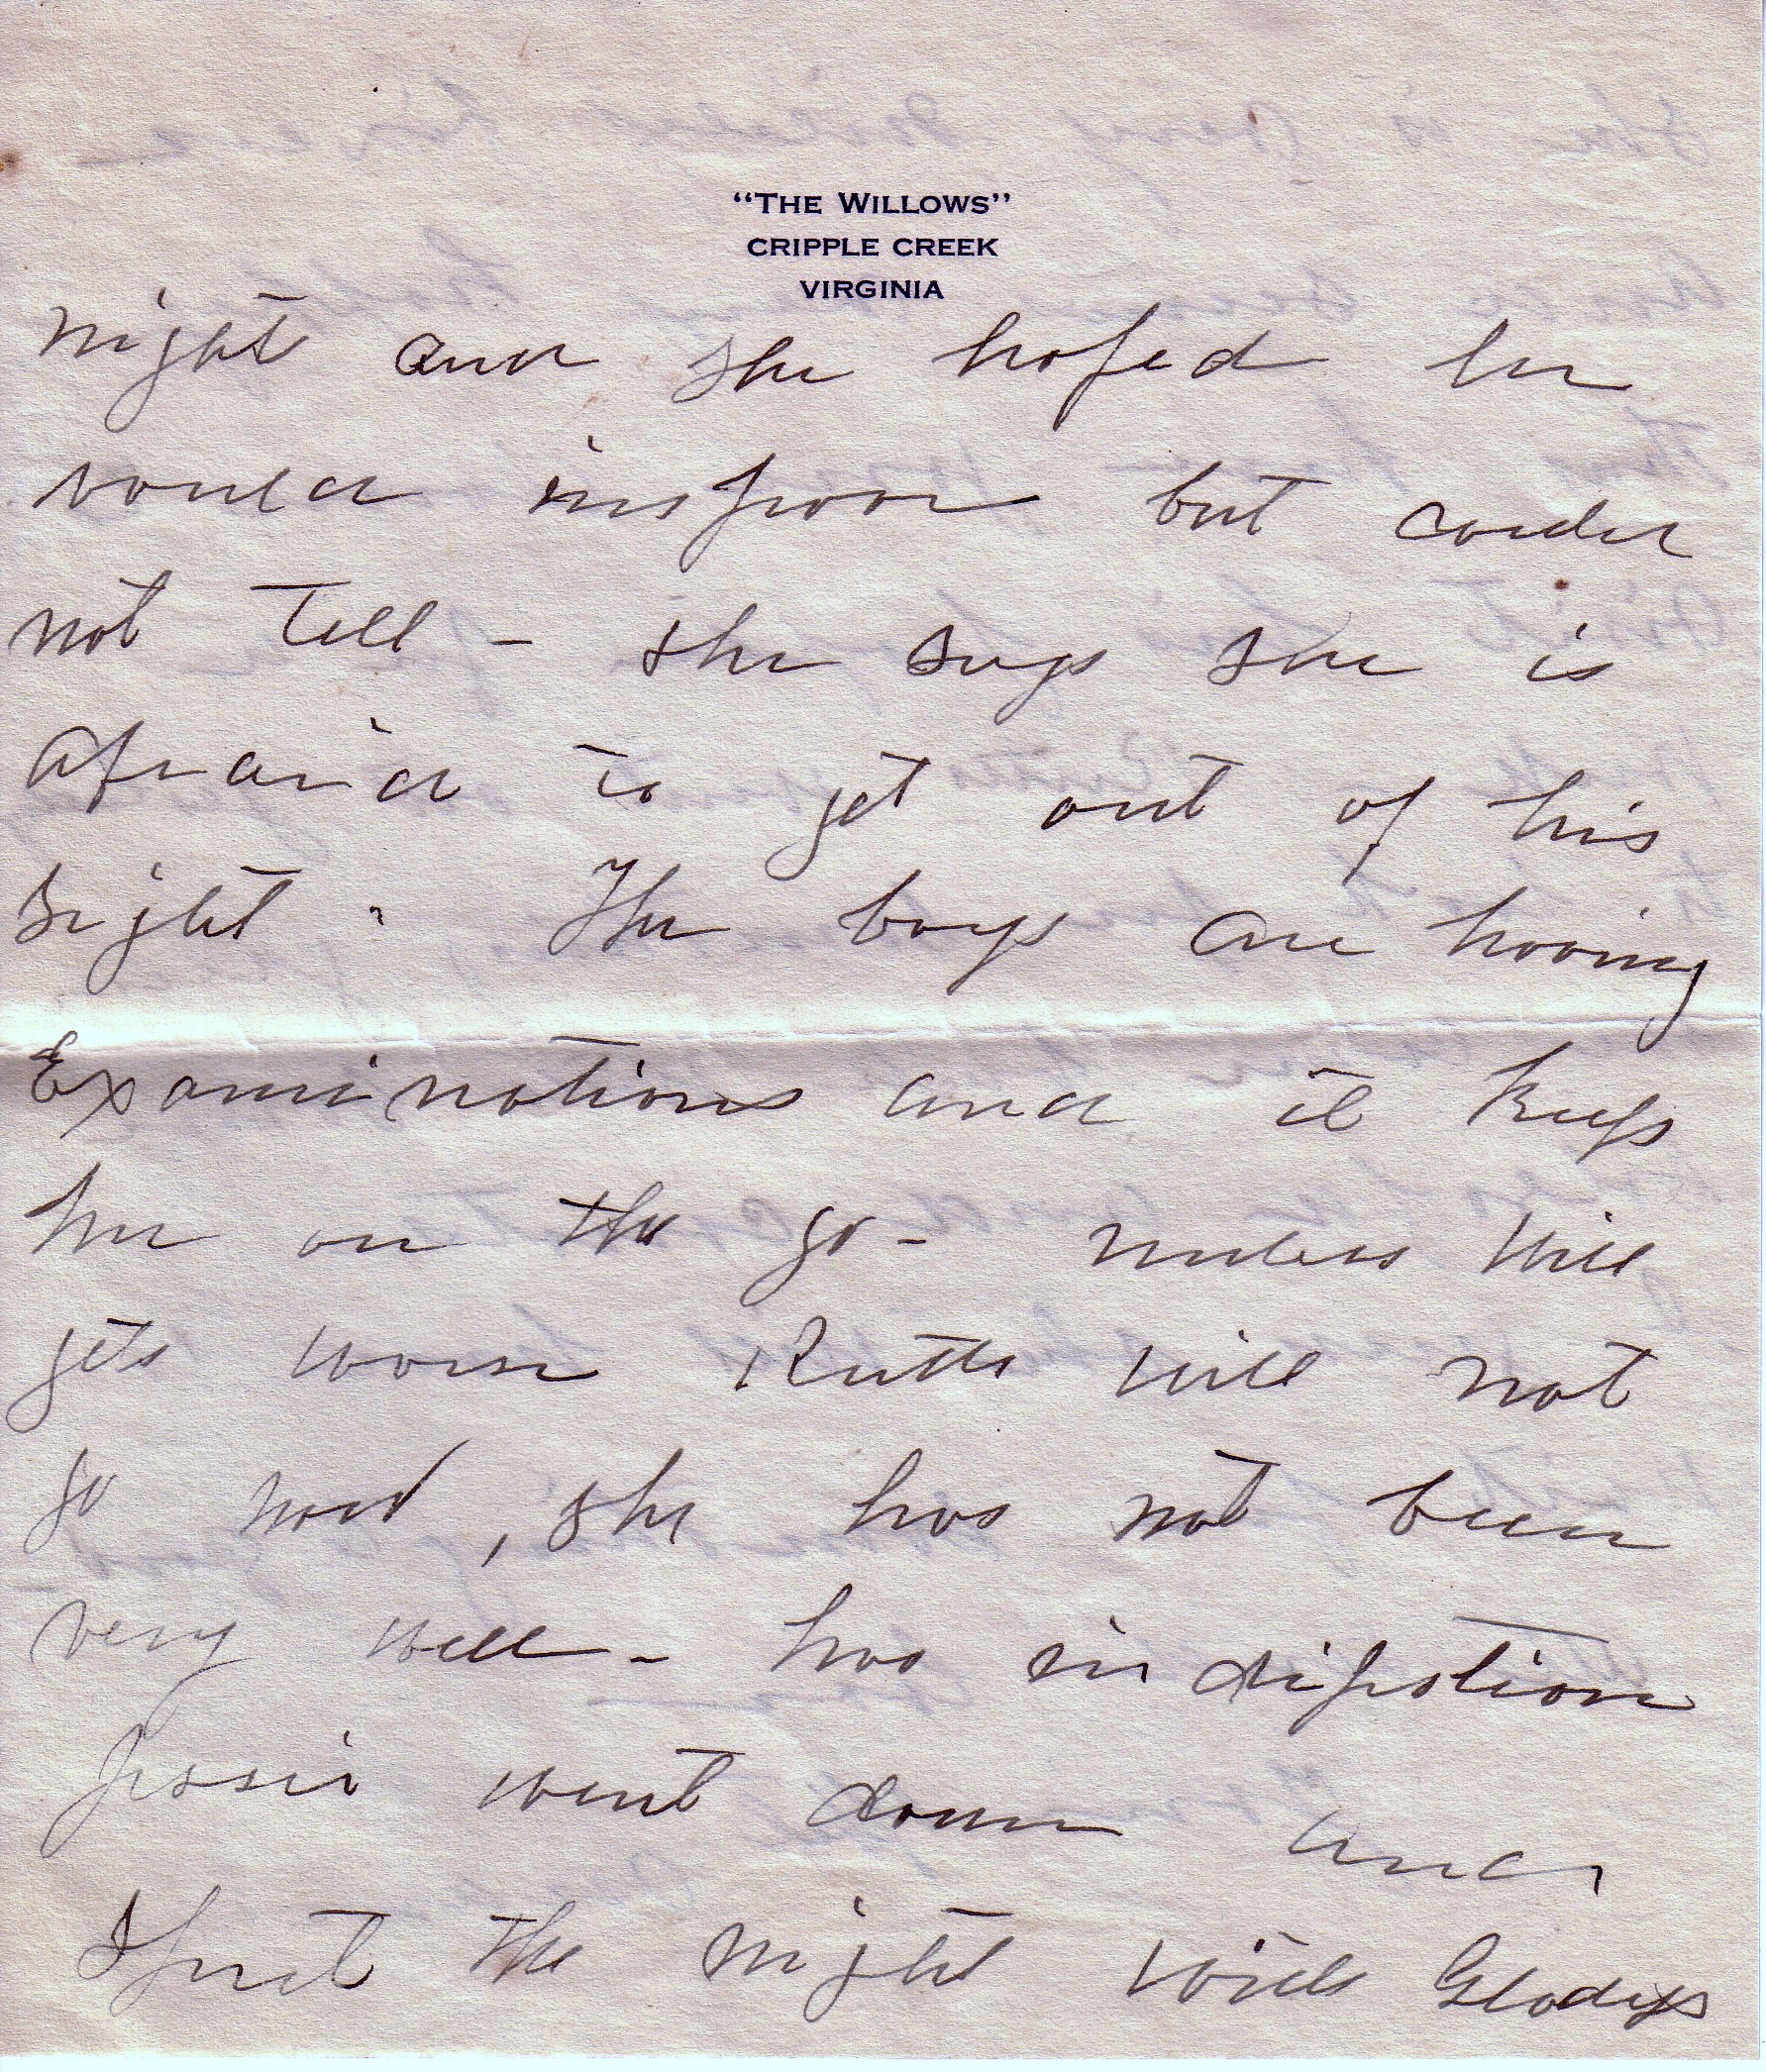 “THE WILLOWS”
CRIPPLE CREEK
VIRGINIA
night and she hoped he
would improve but could
not tell - she says she is
afraid to get out of his
sight. The boys are having
Examinations and it keeps
her on the go - unless Will
gets worse Ruth will not
go now, she has not been
very well - has indigestion
Jessie went down and
spent the night with Gladys